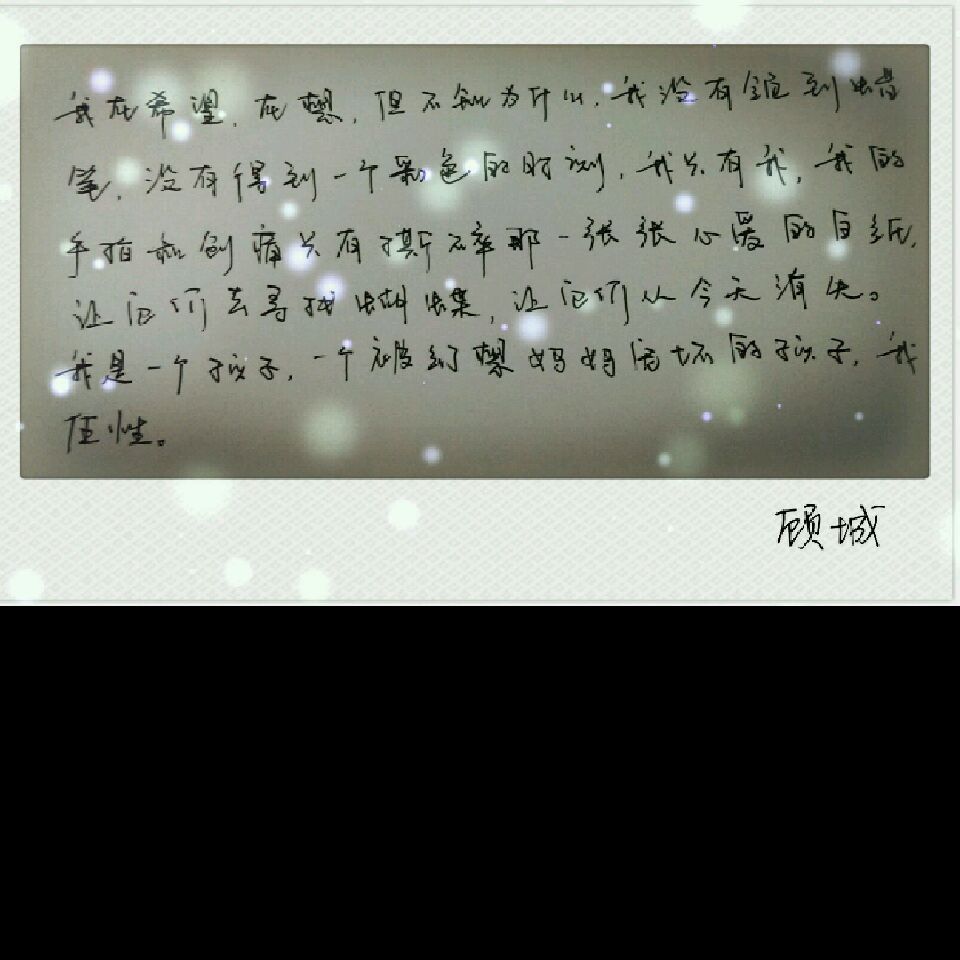 我在希望,在想,但不知为什么,我没有领到蜡
笔,没有得到一个彩色的时刻,我只有我,我的
手指和创痛只有撕碎那一张张心爱的白纸,
让它们去寻找蝴蝶,让它们从今天消失。
我是一个孩子,一个被幻想妈妈宠坏的孩子,我
任性。
顾城